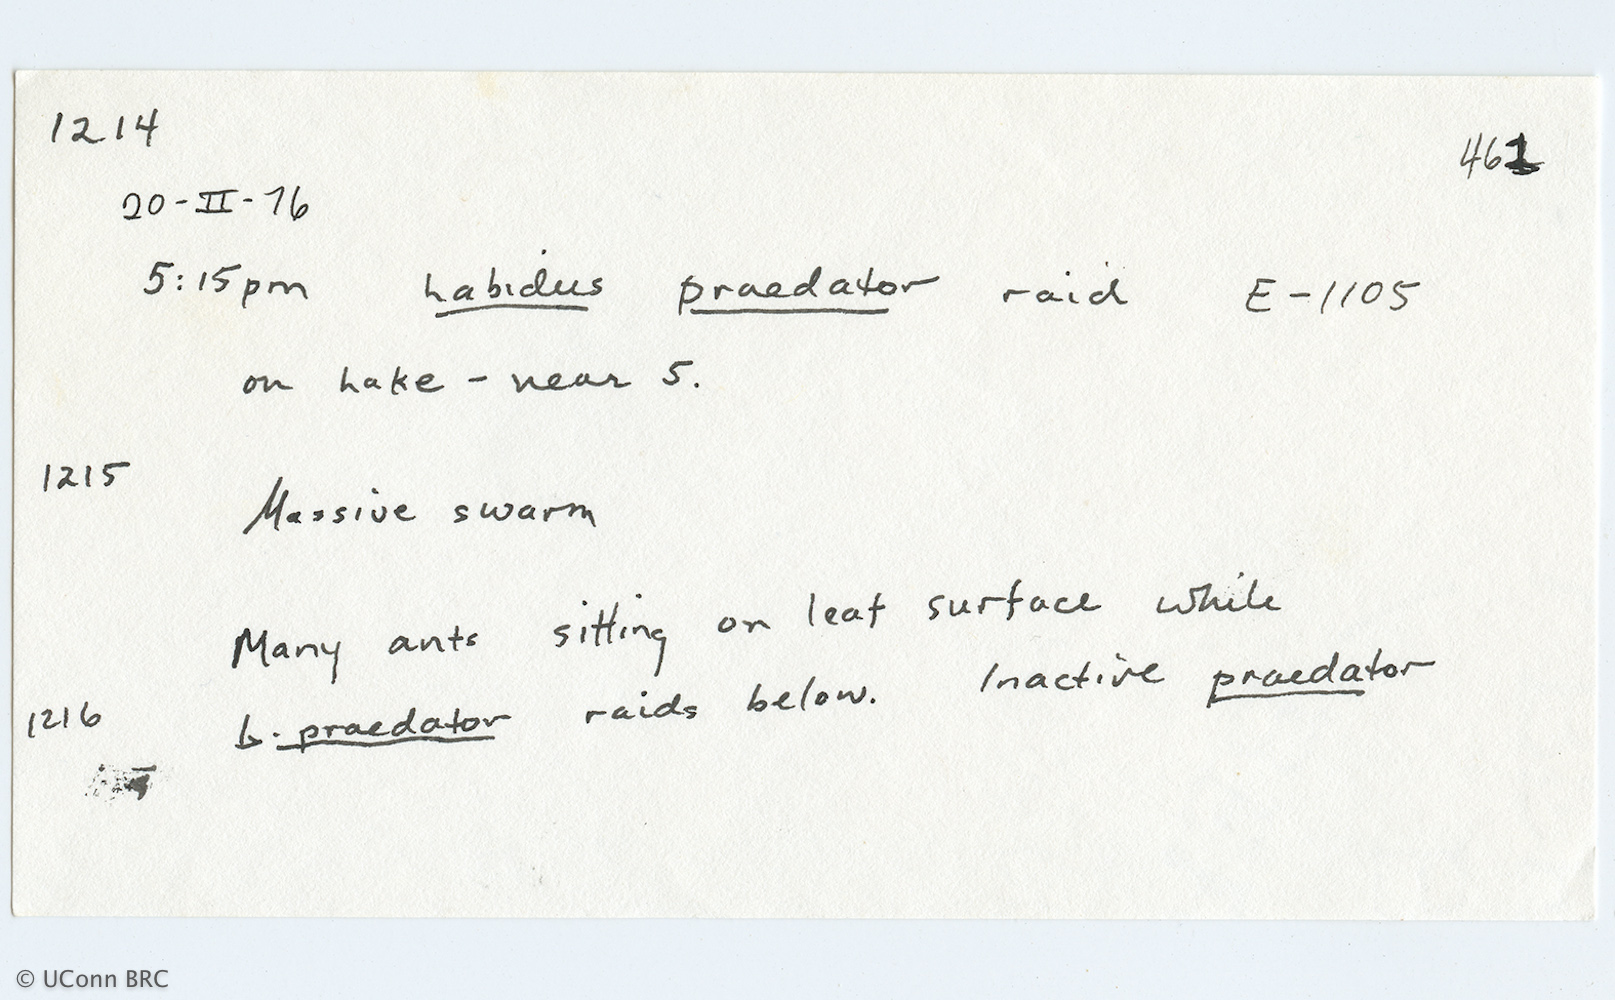 1214
461
20-II-76
5:15pm Labidus praedator raid E-1105
on Lake - near 5.
1215
Massive swarm
Many ants sitting on leaf surface while
1216
L. praedator raids below. Inactive praedator
© UConn BRC